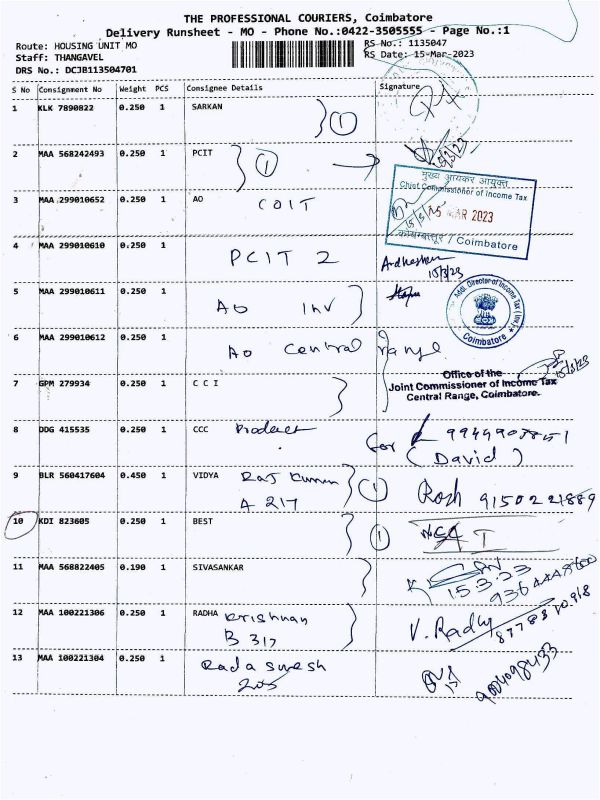 THE PROFESSIONAL COURIERS, Coimbatore
Delivery Runsheet - MO - Phone No.:0422-3505555 - Page No.:1
Route: HOUSING UNIT MO
RS No.: 1135047
Staff: THANGAVEL
RS Date: 15-Mar-2023
DRS No.: DCJB113504701
S No Consignment No Weight PCS Consignee Details Signature
1 KLK 7890822 0.250 1 SARKAN 1
2 MAA 568242493 0.250 1 PCIT 1 15/3/23
मुख्य आयकर आयुक्त
Chief Commissioner of Income Tax
3 MAA 299010652 0.250 1 AO COIT
15/3/23 15 MAR 2023
कोयम्बत्तूर / Coimbatore
4 MAA 299010610 0.250 1 PCIT 2
15/3/23
5 MAA 299010611 0.250 1 AO Inv
Addl. Director of Income Tax (Inv.)
Coimbatore
6 MAA 299010612 0.250 1 AO Central range
15/3/23
Office of the
Joint Commissioner of Income Tax
Central Range, Coimbatore.
7 GPM 279934 0.250 1 C C I
8 DDG 415535 0.250 1 CCC Product
for
(David)
9 BLR 560417604 0.450 1 VIDYA Raj Kumar 1
A 217
Rosh 9150221889
10 KDI 823605 0.250 1 BEST 1
11 MAA 568822405 0.190 1 SIVASANKAR
15.3.23
12 MAA 100221306 0.250 1 RADHA Krishnan
B 317
V. Radhy
13 MAA 100221304 0.250 1 Rada suresh
9004098433